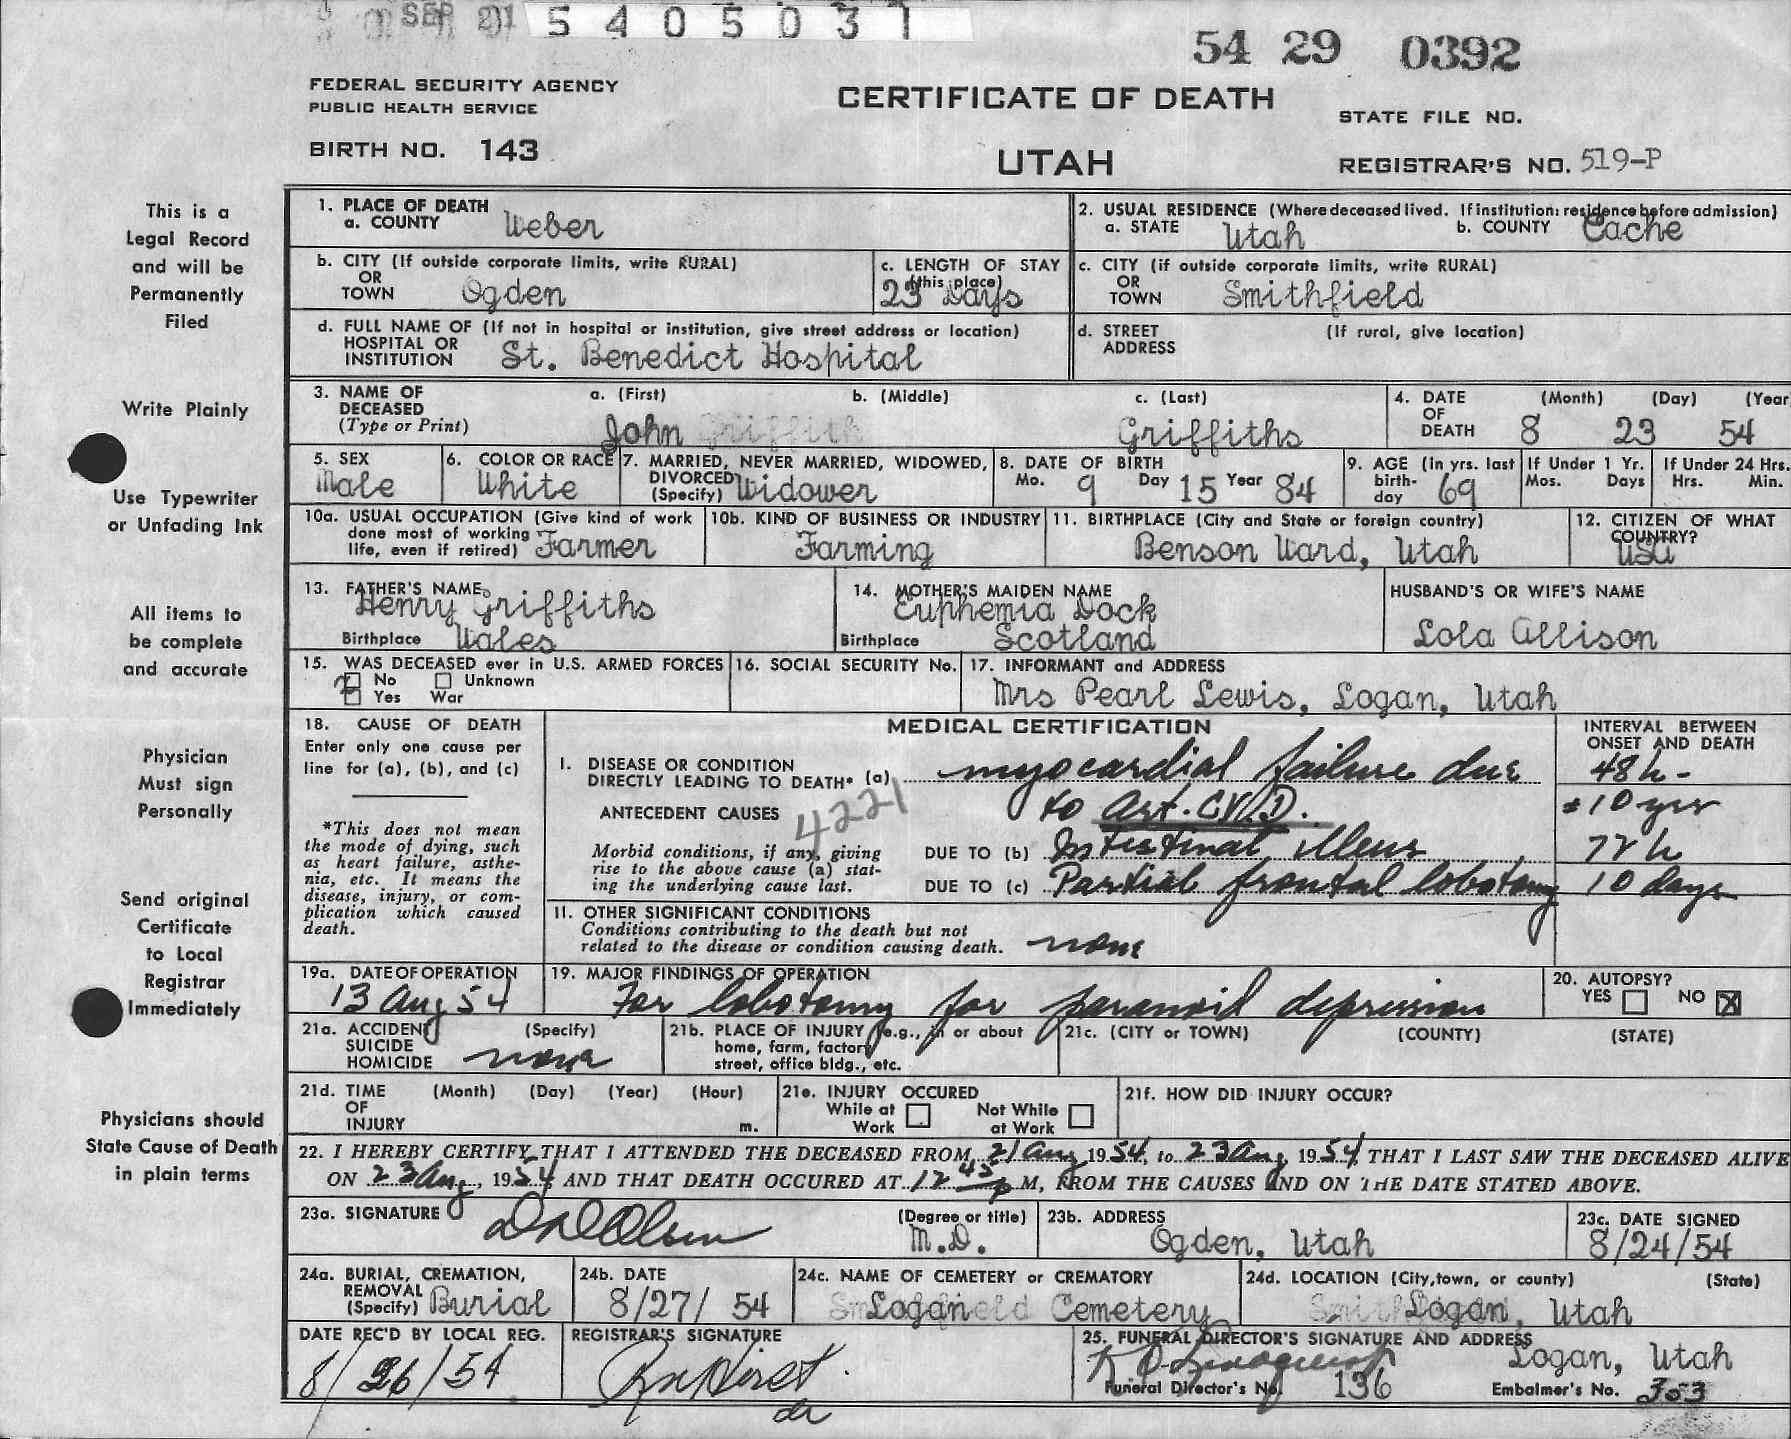 SEP
5 4 0 5 0 3 1
54 29 0392
FEDERAL SECURITY AGENCY
PUBLIC HEALTH SERVICE
BIRTH NO. 143
CERTIFICATE OF DEATH
UTAH
STATE FILE NO.
REGISTRAR'S NO. 519-P
This is a
Legal Record
and will be
Permanently
Filed
Write Plainly
Use Typewriter
or Unfading Ink
All items to
be complete
and accurate
Physician
Must sign
Personally
Send original
Certificate
to Local
Registrar
Immediately
Physicians should
State Cause of Death
in plain terms
1. PLACE OF DEATH
a. COUNTY Weber
2. USUAL RESIDENCE (Where deceased lived. If institution: residence before admission)
a. STATE Utah b. COUNTY Cache
b. CITY (If outside corporate limits, write RURAL)
OR
TOWN Ogden
c. LENGTH OF STAY
(this place)
23 Days
c. CITY (if outside corporate limits, write RURAL)
OR
TOWN Smithfield
d. FULL NAME OF (If not in hospital or institution, give street address or location)
HOSPITAL OR
INSTITUTION St. Benedict Hospital
d. STREET (If rural, give location)
ADDRESS
3. NAME OF a. (First) b. (Middle) c. (Last)
DECEASED
(Type or Print) John Griffiths
4. DATE (Month) (Day) (Year
OF
DEATH 8 23 54
5. SEX
Male
6. COLOR OR RACE
White
7. MARRIED, NEVER MARRIED, WIDOWED,
DIVORCED
(Specify) Widower
8. DATE OF BIRTH
Mo. 9 Day 15 Year 84
9. AGE (In yrs. last
birth-
day 69
If Under 1 Yr.
Mos. Days
If Under 24 Hrs.
Hrs. Min.
10a. USUAL OCCUPATION (Give kind of work
done most of working
life, even if retired) Farmer
10b. KIND OF BUSINESS OR INDUSTRY
Farming
11. BIRTHPLACE (City and State or foreign country)
Benson Ward, Utah
12. CITIZEN OF WHAT
COUNTRY?
USA
13. FATHER'S NAME
Henry Griffiths
Birthplace Wales
14. MOTHER'S MAIDEN NAME
Euphemia Dock
Birthplace Scotland
HUSBAND'S OR WIFE'S NAME
Lola Allison
15. WAS DECEASED ever in U.S. ARMED FORCES
No Unknown
Yes War
16. SOCIAL SECURITY No.
17. INFORMANT and ADDRESS
Mrs Pearl Lewis, Logan, Utah
18. CAUSE OF DEATH
Enter only one cause per
line for (a), (b), and (c)
*This does not mean
the mode of dying, such
as heart failure, asthe-
nia, etc. It means the
disease, injury, or com-
plication which caused
death.
MEDICAL CERTIFICATION
INTERVAL BETWEEN
ONSET AND DEATH
I. DISEASE OR CONDITION
DIRECTLY LEADING TO DEATH* (a) myocardial failure due 48 h -
ANTECEDENT CAUSES 4221 to Art. C.V.D. ± 10 yrs
Morbid conditions, if any, giving
rise to the above cause (a) stat-
ing the underlying cause last.
DUE TO (b) Intestinal illeus 72 h
DUE TO (c) Partial frontal lobotomy 10 days
II. OTHER SIGNIFICANT CONDITIONS
Conditions contributing to the death but not
related to the disease or condition causing death. none
19a. DATE OF OPERATION
13 Aug 54
19. MAJOR FINDINGS OF OPERATION
For lobotomy for paranoid depression
20. AUTOPSY?
YES NO X
21a. ACCIDENT (Specify)
SUICIDE
HOMICIDE none
21b. PLACE OF INJURY (e.g., in or about
home, farm, factory
street, office bldg., etc.
21c. (CITY or TOWN) (COUNTY) (STATE)
21d. TIME (Month) (Day) (Year) (Hour)
OF
INJURY m.
21e. INJURY OCCURED
While at Work Not While at Work
21f. HOW DID INJURY OCCUR?
22. I HEREBY CERTIFY THAT I ATTENDED THE DECEASED FROM 21 Aug 1954, to 23 Aug, 1954, THAT I LAST SAW THE DECEASED ALIVE
ON 23 Aug, 1954 AND THAT DEATH OCCURED AT 12 45 p M, FROM THE CAUSES AND ON THE DATE STATED ABOVE.
23a. SIGNATURE (Degree or title)
M.D.
23b. ADDRESS
Ogden, Utah
23c. DATE SIGNED
8/24/54
24a. BURIAL, CREMATION,
REMOVAL
(Specify) Burial
24b. DATE
8/27/ 54
24c. NAME OF CEMETERY or CREMATORY
Logan Cemetery
24d. LOCATION (City, town, or county) (State)
Logan, Utah
DATE REC'D BY LOCAL REG.
8/26/54
REGISTRAR'S SIGNATURE
25. FUNERAL DIRECTOR'S SIGNATURE AND ADDRESS
Logan, Utah
Funeral Director's No. 136 Embalmer's No. 353